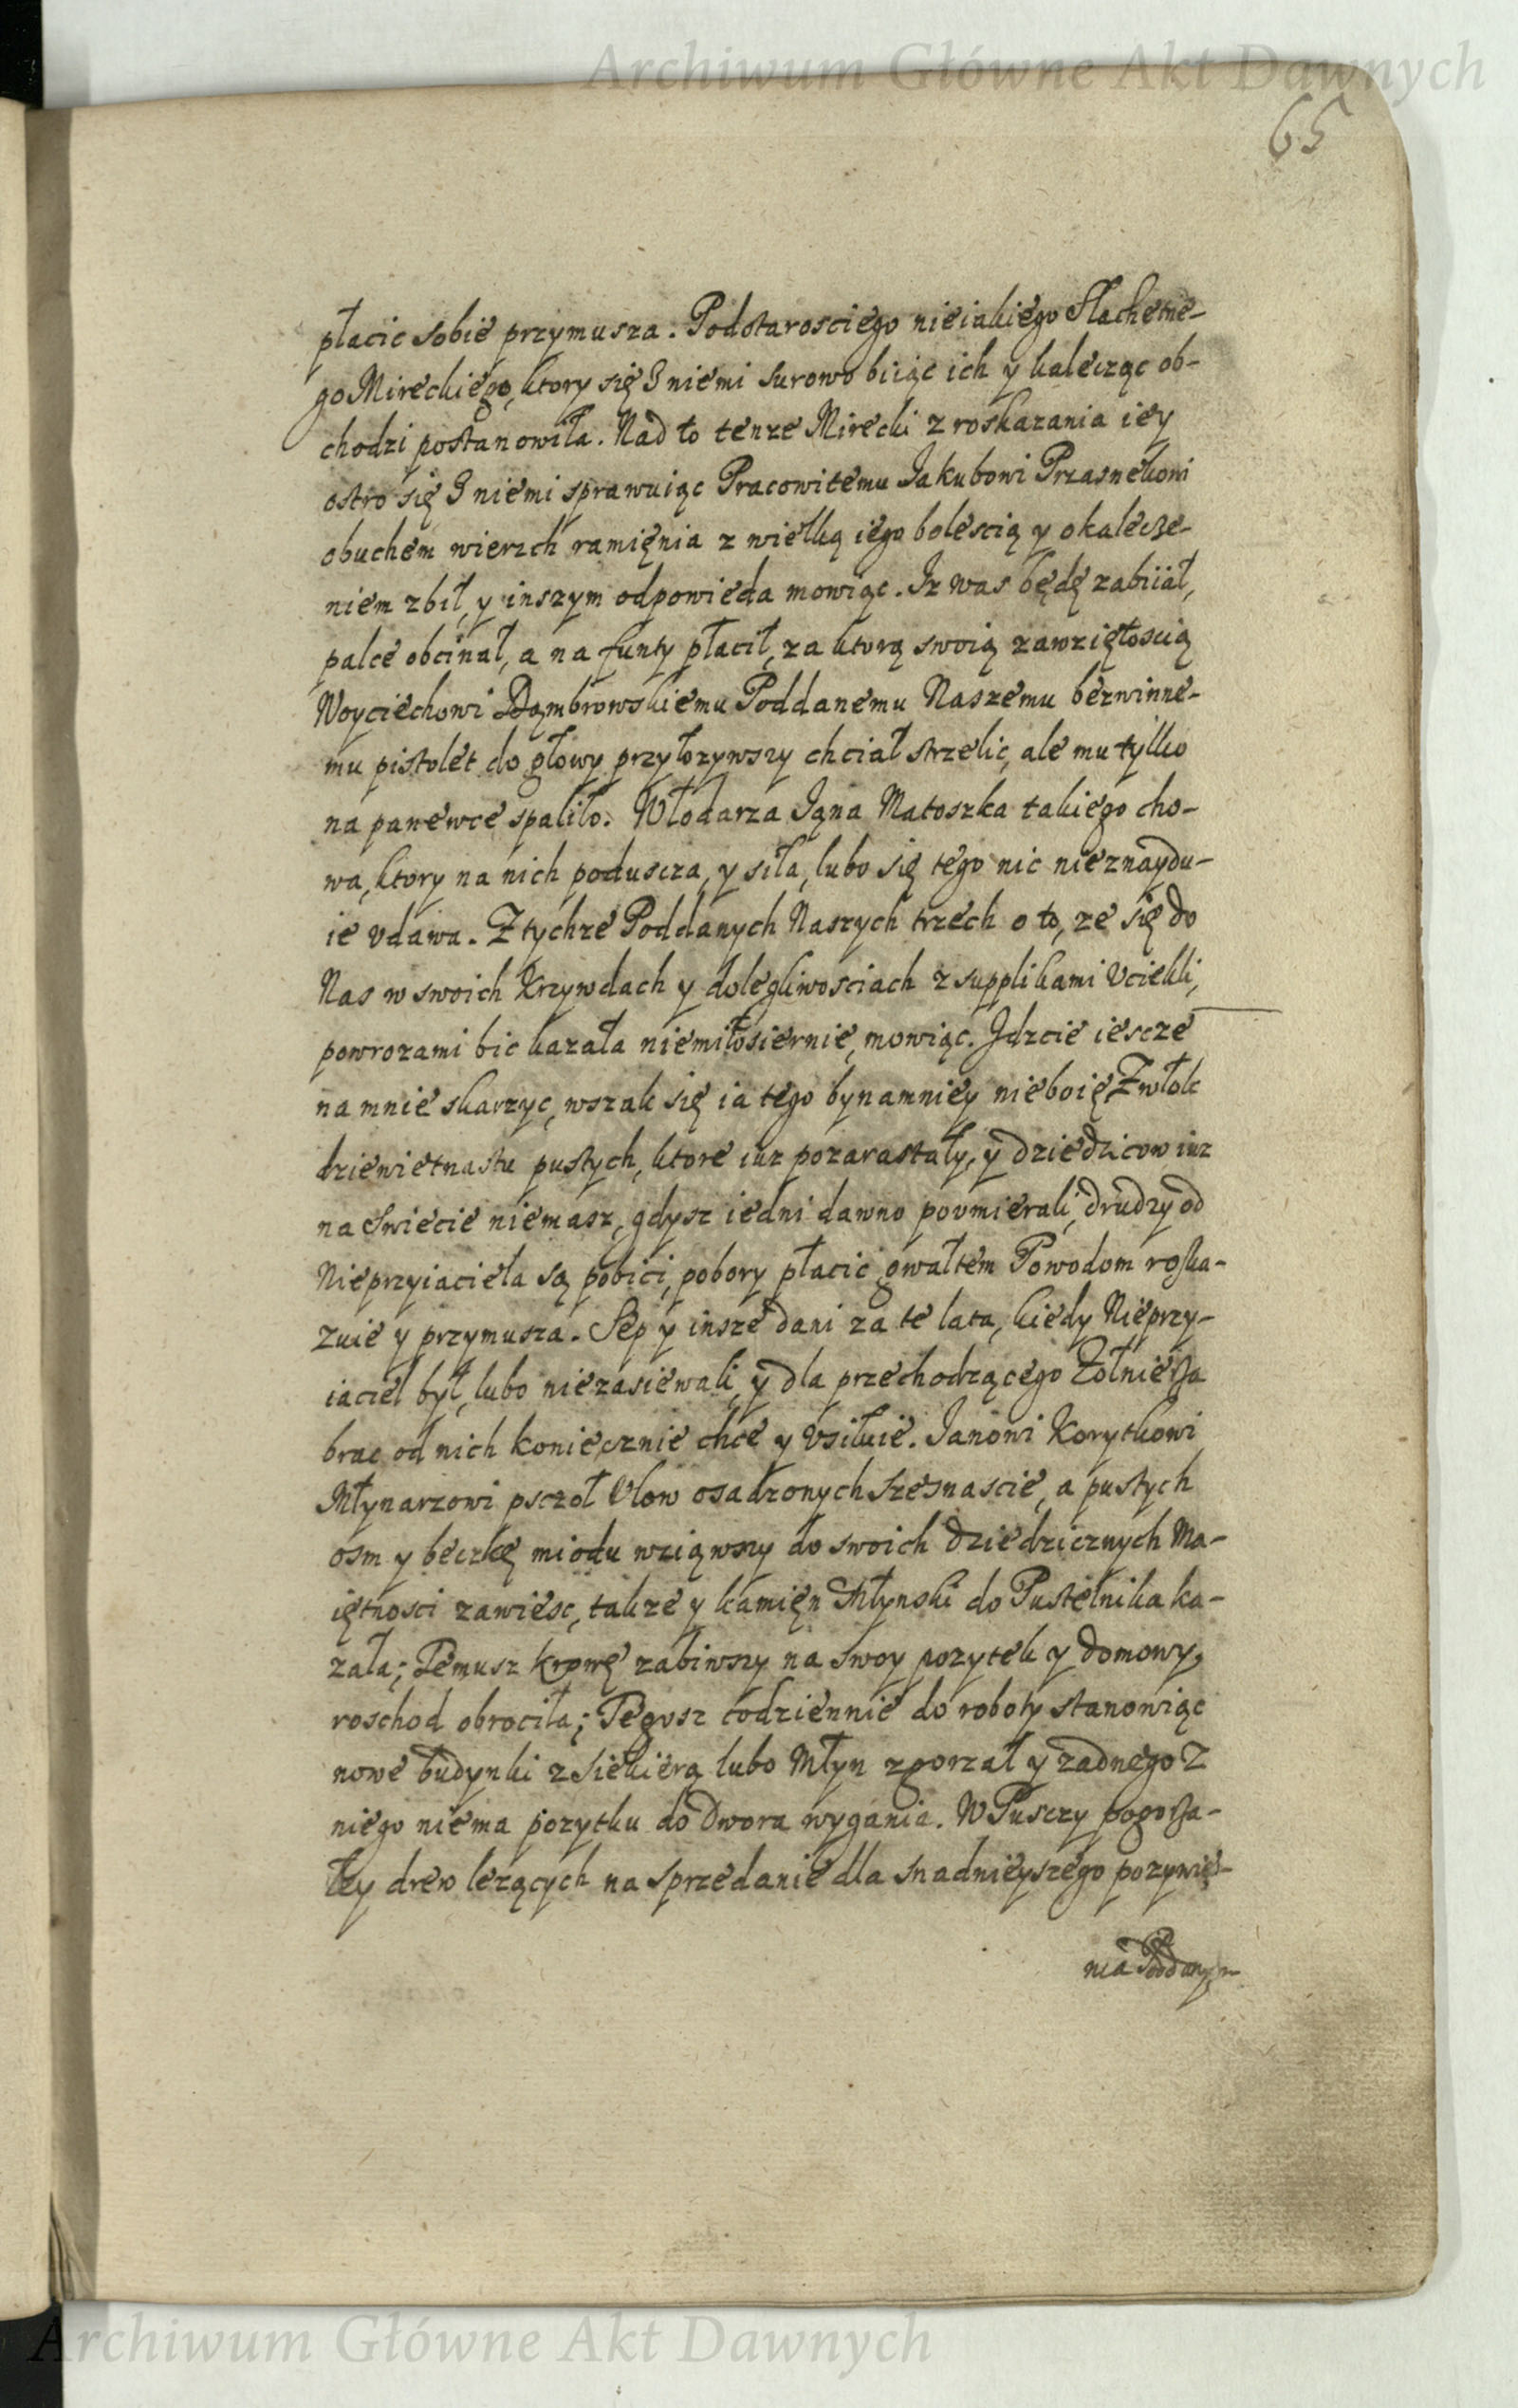 Archiwum Główne Akt Dawnych
65
płacic sobie przymusza. Podstarosciego nieiakiego Slachetne-
go Mireckiego, ktory się z niemi surowo biiąc ich y kalecząc ob-
chodzi postanowiła. Nad to tenze Mirecki z roskazania iey
ostro się z niemi sprawuiąc Pracowitemu Iakubowi Przasnekowi
obuchem wierzch ramięnia z wielką iego bolescią y okalecze-
niem zbił, y inszym odpowieda mowiąc. Iz was będę zabiiał,
palce obcinał, a na funty płacił, za ktorą swoią zawziętoscią
Woyciechowi Dąmbrowskiemu Poddanemu Naszemu bezwinne-
mu pistolet do głowy przyłozywszy chciał strzelic, ale mu tylko
na panewce spaliło. Włodarza Iąna Matoszka takiego cho-
wa, ktory na nich poduscza, y siła, lubo się tego nic nieznaydu-
ie vdawa. Z tychze Poddanych Naszych trzech o to, ze się do
Nas w swoich Krzywdach y dolegliwosciach z supplikami Vciekli,
powrozami bic kazała niemiłosiernie, mowiąc. Idzcie iescze
na mnie skarzyc, wszak się ia tego bynamniey nieboię Z włok
dziewietnastu pustych, ktore iuz pozarastały, y dziedzicow iuz
na Swiecie niemasz, gdysz iedni dawno povmierali, drudzy od
Nieprzyiaciela są pobici, pobory płacic gwałtem Powodom roska-
zuie y przymusza. Sep y insze dani za te lata, kiedy Nieprzy-
iaciel był, lubo niezasiewali, y dla przechodzącego Zołnierza
brac od nich koniecznie chce y Vsiłuie. Ianowi Korytkowi
Młynarzowi psczoł Vlow osadzonych szesnascie, a pustych
osm y beczkę miodu wziąwszy do swoich dziedzicznych Ma-
iętnosci zawiesc, takze y kamięn Młynski do Pustelnika ka-
zała; Temusz krowę zabiwszy na swoy pozytek y domowy
roschod obrociła; Tegosz codziennie do roboty stanowiąc
nowe budynki z siekierą lubo Młyn zgorzał y zadnego z
niego niema pozytku do Dwora wygania. W Pusczy pogorza-
łey drew lezących na sprzedanie dla snadnieyszego pozywie-
nia Poddanym
Archiwum Główne Akt Dawnych